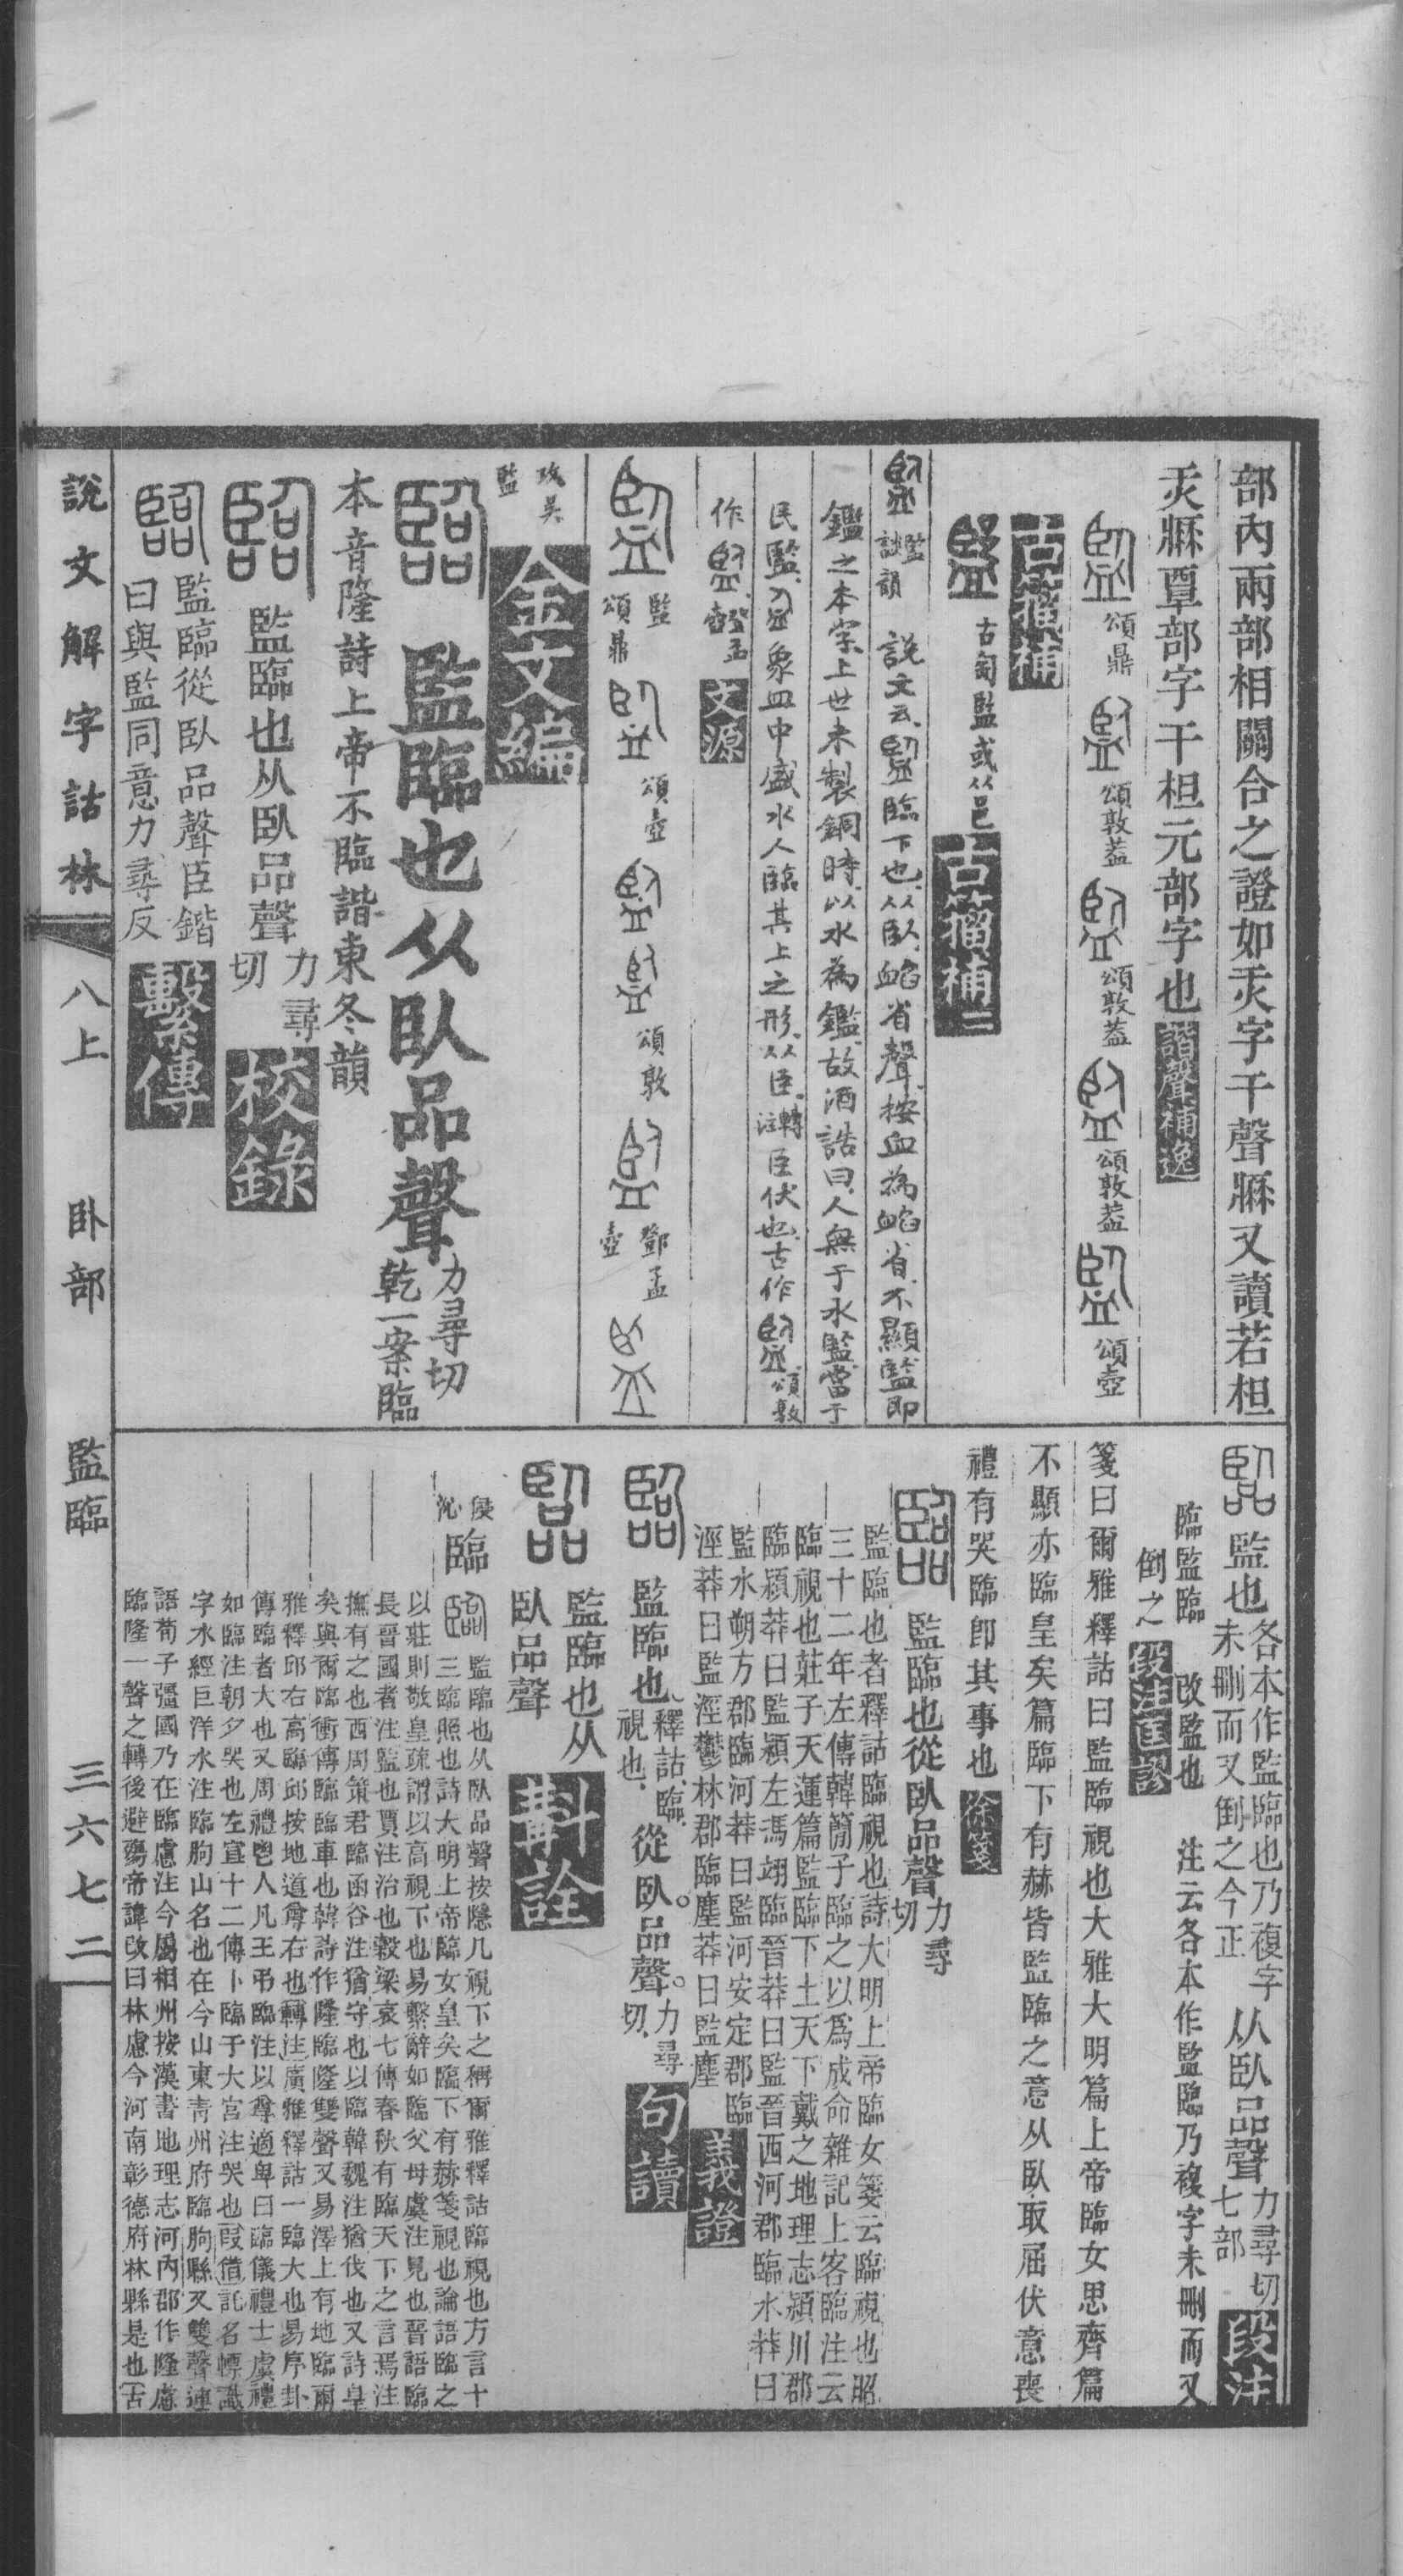 部內兩部相關合之證如㶣字干聲㾕又讀若桓
頌鼎
頌敦蓋
頌敦蓋
頌敦蓋
頌壺
古籀補
古匋監或从邑
古籀補二
說文云臨下也从臥䘓省聲按血為䘓省不顯監即
鑑之本字上世未製銅時以水為鑑故酒誥曰人無于水監當于
民監象皿中盛水人臨其上之形从臣轉注臣伏也古作頌敦
作鄧孟
文源
監頌鼎
頌壺
頌敦
鄧孟壺
攻吳監
金文編
監臨也从臥品聲力尋切
乾一案臨
本音隆詩上帝不臨諧東冬韻
監臨也从臥品聲力尋切
校錄
監臨從臥品聲臣鍇
曰與監同意力尋反
繫傳
監也各本作監臨也乃複字未刪而又倒之今正从臥品聲力尋切七部
段注
臨監臨 改監也 注云各本作監臨乃複字未刪而又
倒之
段注匡謬
箋曰爾雅釋詁曰監臨視也大雅大明篇上帝臨女思齊篇
不顯亦臨皇矣篇臨下有赫皆監臨之意从臥取屈伏意喪
禮有哭臨即其事也
徐箋
監臨也從臥品聲力尋切
監臨也者釋詁臨視也詩大明上帝臨女箋云臨視也昭
三十二年左傳韓簡子臨之以爲成命雜記上客臨注云
臨視也莊子天運篇監臨下土天下戴之地理志潁川郡
臨潁莽曰監潁左馮翊臨晉莽曰監晉西河郡臨水莽曰
監水朔方郡臨河莽曰監河安定郡臨
涇莽曰監涇鬱林郡臨塵莽曰監塵
義證
監臨也釋詁臨視也從臥品聲力尋切
句讀
監臨也从
臥品聲
斠詮
侵沁
臨
監臨也从臥品聲按隱几視下之稱爾雅釋詁臨視也方言十
三臨照也詩大明上帝臨女皇矣臨下有赫箋視也論語臨之
以莊則敬皇疏謂以高視下也易繫辭如臨父母虞注見也晉語臨
長晉國者注監也賈注治也穀梁哀七傳春秋有臨天下之言焉注
撫有之也西周策君臨函谷注猶守也以臨韓魏注猶伐也又詩皇
矣與爾臨衝傳臨臨車也韓詩作隆臨隆雙聲又易澤上有地臨爾
雅釋邱右高臨邱按地道尊右也轉注廣雅釋詁一臨大也易序卦
傳臨者大也又周禮鬯人凡王弔臨注以尊適卑曰臨儀禮士虞禮
如臨注朝夕哭也左宣十二傳卜臨于大宮注哭也叚借託名幖識
字水經巨洋水注臨朐山名也在今山東靑州府臨朐縣又雙聲連
語荀子彊國乃在臨慮注今屬相州按漢書地理志河內郡作隆慮
臨隆一聲之轉後避殤帝諱改曰林慮今河南彰德府林縣是也古
說文解字詁林
八上
臥部
監臨
三六七二